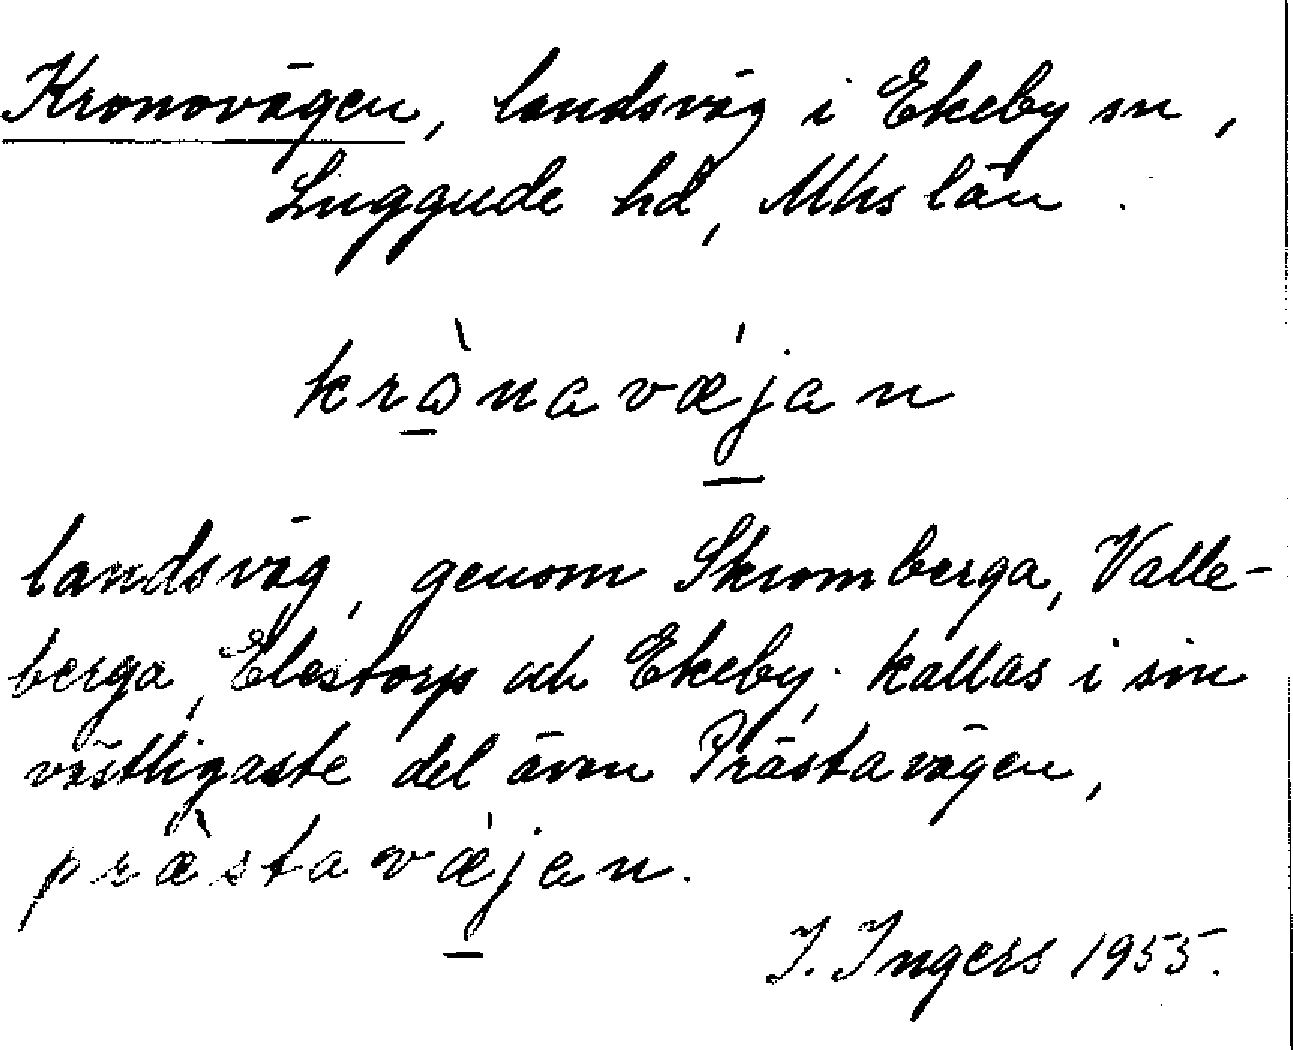 Kronovägen, landsväg i Ekeby sn,
Luggude hd, Mhs län.
krònavǽjan
landsväg, genom Skromberga, Valle-
berga, Elestorp och Ekeby; kallas i sin
västligaste del även Prästavägen,
præ̀stavǽjen.
I. Ingers 1955.